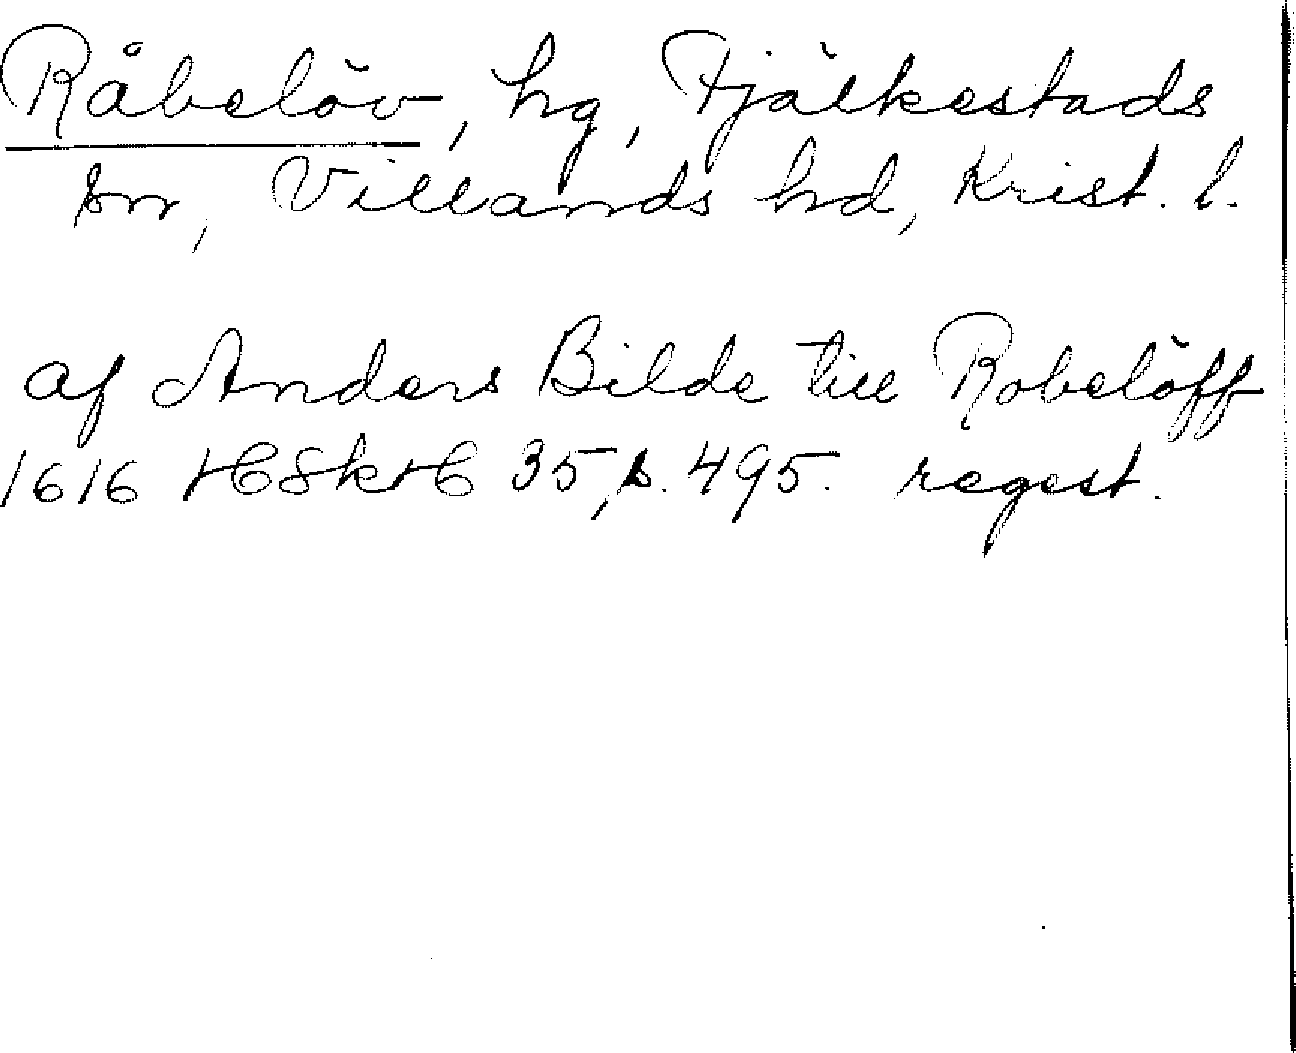 Råbelöv, hg, Fjälkestads
sn, Villands hd, Krist. l.
af Anders Bilde till Robelöff
1616 HSkH 35, s. 495. regest.